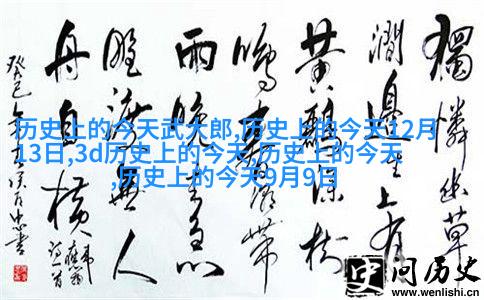 獨憐幽草
澗邊生上有
黃鸝深樹
鳴春潮帶
雨晚來急
野渡無人
舟自橫
癸巳年
历史上的今天武大郎,历史上的今天12月
13日,3d历史上的今天,历史上的今天
,历史上的今天9月9日
史问历史
www.wenlishi.cn